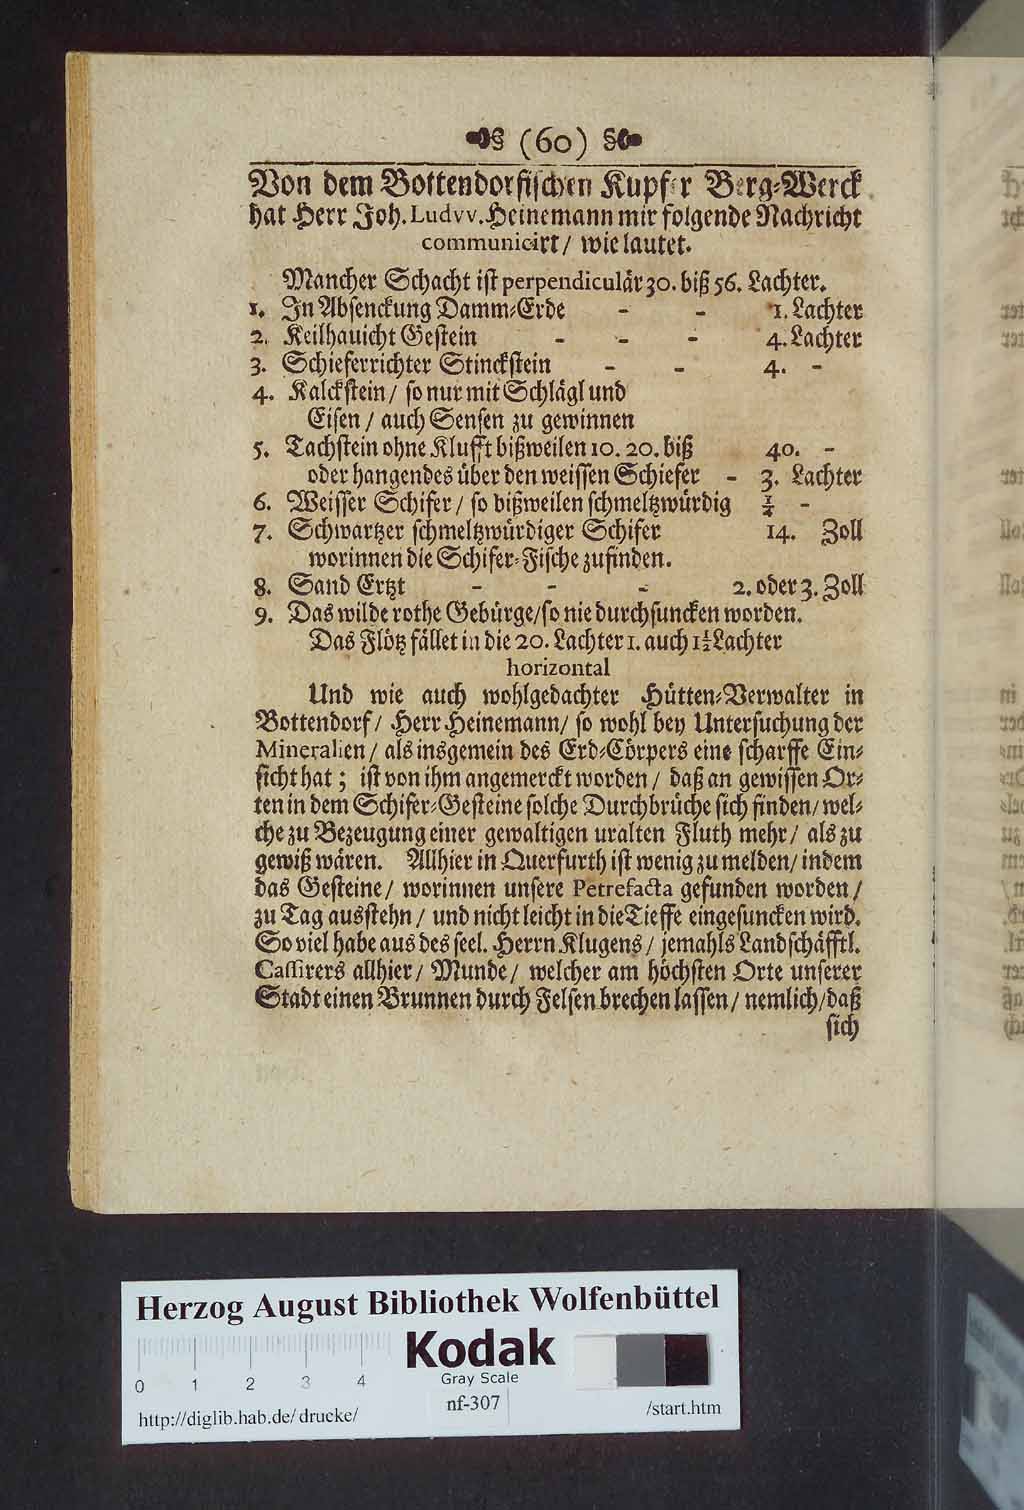 (60)
Von dem Bottendorfischen Kupfer Berg-Werck
hat Herr Joh. Ludvv. Heinemann mir folgende Nachricht
communicirt / wie lautet.
Mancher Schacht ist perpendiculär 30. biß 56. Lachter.
1. In Absenckung Damm-Erde - - 1. Lachter
2. Keilhauicht Gestein - - - 4. Lachter
3. Schieferrichter Stinckstein - - 4. -
4. Kalckstein / so nur mit Schlägl und
Eisen / auch Sensen zu gewinnen
5. Tachstein ohne Klufft bißweilen 10. 20. biß 40. -
oder hangendes über den weissen Schiefer - 3. Lachter
6. Weisser Schifer / so bißweilen schmeltzwürdig ¼ -
7. Schwartzer schmeltzwürdiger Schifer 14. Zoll
worinnen die Schifer-Fische zufinden.
8. Sand Ertzt - - - 2. oder 3. Zoll
9. Das wilde rothe Gebürge / so nie durchsuncken worden.
Das Flötz fället in die 20. Lachter 1. auch 1½ Lachter
horizontal
Und wie auch wohlgedachter Hütten-Verwalter in
Bottendorf / Herr Heinemann / so wohl bey Untersuchung der
Mineralien / als insgemein des Erd-Cörpers eine scharffe Ein-
sicht hat ; ist von ihm angemerckt worden / daß an gewissen Or-
ten in dem Schifer-Gesteine solche Durchbrüche sich finden / wel-
che zu Bezeugung einer gewaltigen uralten Fluth mehr / als zu
gewiß wären. Allhier in Querfurth ist wenig zu melden / indem
das Gesteine / worinnen unsere Petrefacta gefunden worden /
zu Tag ausstehn / und nicht leicht in die Tieffe eingesuncken wird.
So viel habe aus des seel. Herrn Klugens / jemahls Landschäfftl.
Cassirers allhier / Munde / welcher am höchsten Orte unserer
Stadt einen Brunnen durch Felsen brechen lassen / nemlich / daß
sich
Herzog August Bibliothek Wolfenbüttel
Kodak
Gray Scale
0 1 2 3 4
nf-307
http://diglib.hab.de/drucke/ /start.htm